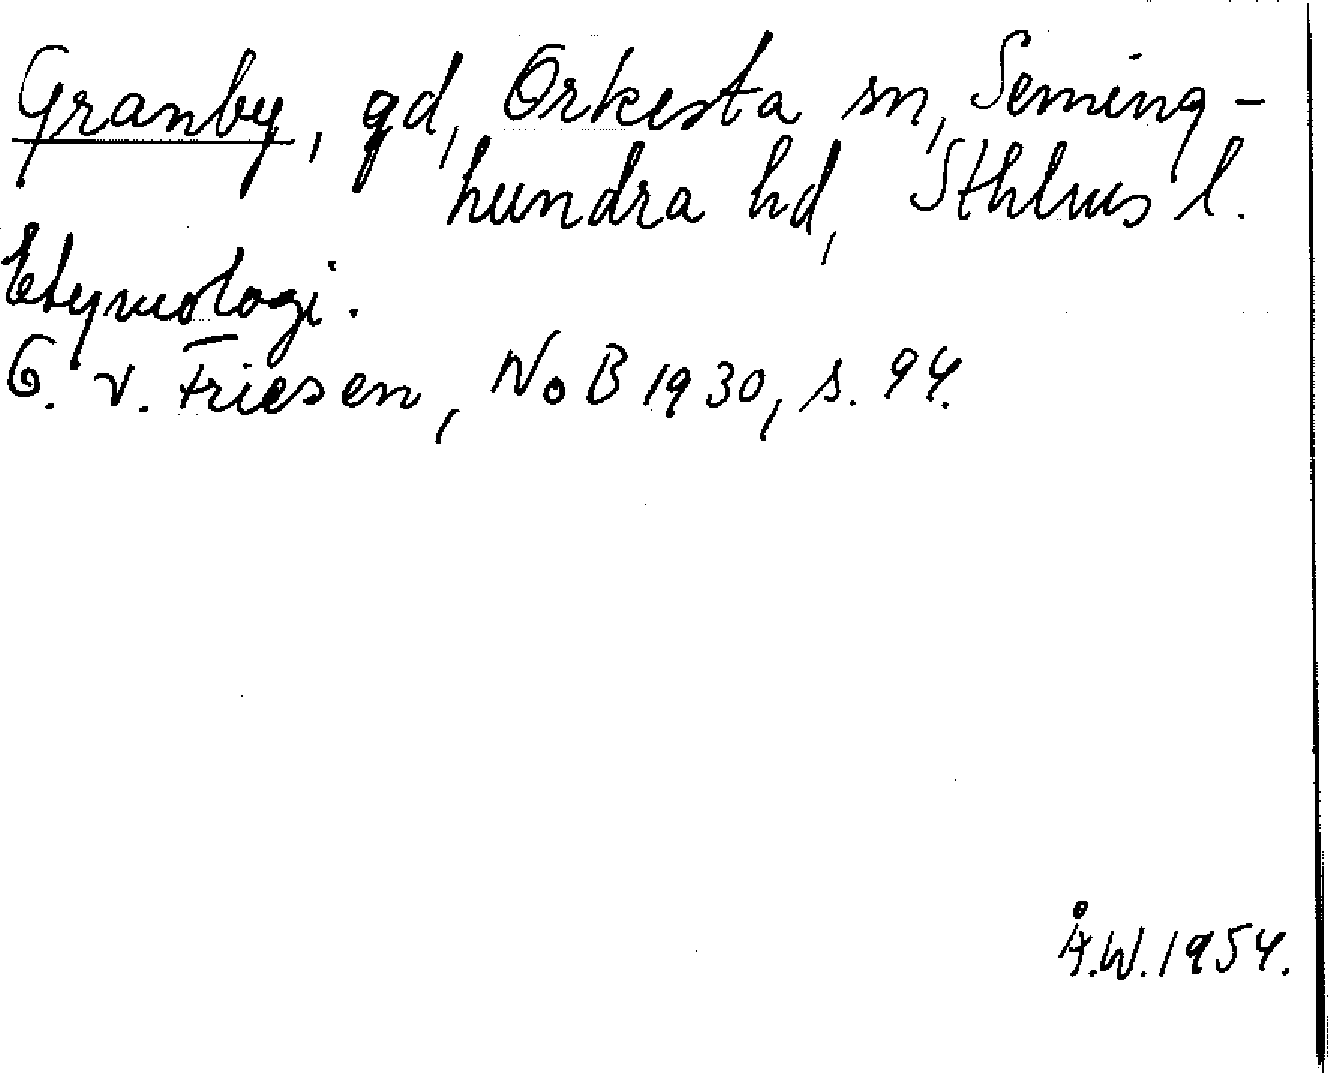 Granby, gd, Orkesta sn, Seming-
hundra hd, Sthlms l.
Etymologi.
O. v. Friesen, NoB 1930, s. 94.
Å.W. 1954.